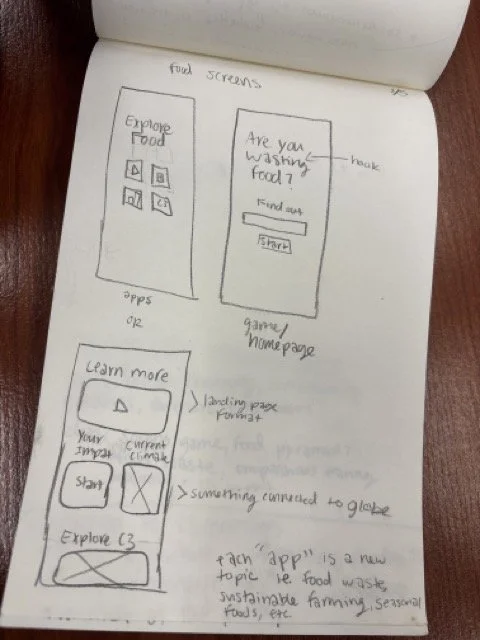 food screens
Explore
Food
apps
OR
Are you
wasting
food?
hook
Find out
Start
game/
homepage
Learn more
landing page
format
Your
Impat
Current
Climate
Start
something connected to globe
Explore C3
each "app" is a new
topic ie food waste,
sustainable farming, seasonal
foods, etc